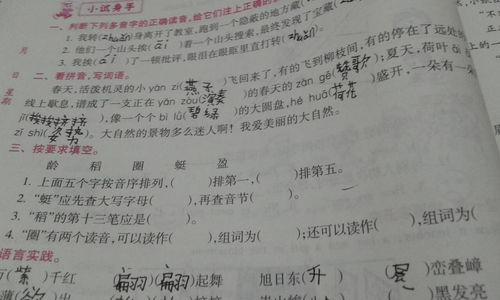 小试身手
一、判断下列多音字的正确读音,给它们注上正确的
1. 我转( )身离开了教室,跑到一个隐蔽的地方藏(
2. 他们一个山头挨(āi)着一个山头搜索,最终发现了宝藏(
3. 我挨(ái)了一顿批评,眼泪在眼眶里直打转(
二、看拼音,写词语。
春天,活泼机灵的小 yàn zi(燕子)飞回来了,有的飞到柳枝间,有的停在了远处
线上歇息,谱成了一支正在 yǎn zòu(演奏)的春天的 zàn gē(赞歌);夏天,荷叶 āi
jǐ(挨挨挤挤),像一个个 bì lǜ(碧绿)的大圆盘, hé huā(荷花)盛开,一朵有一
zī shì( )。大自然的景物多么迷人啊!我爱美丽的大自然。
三、按要求填空。
龄 稻 圈 蜓 盈
1. 上面五个字按音序排列,( )排第一,( )排第五。
2. “蜓”应先查大写字母( ),再查音节( )。
3. “稻”的第十三笔应是( )。
4. “圈”有两个读音,可以读作( ),组词为( );还可以读作( ),组词为(
语言实践。
(紫)千红 (翩)(翩)起舞 旭日东(升) ( )峦叠嶂